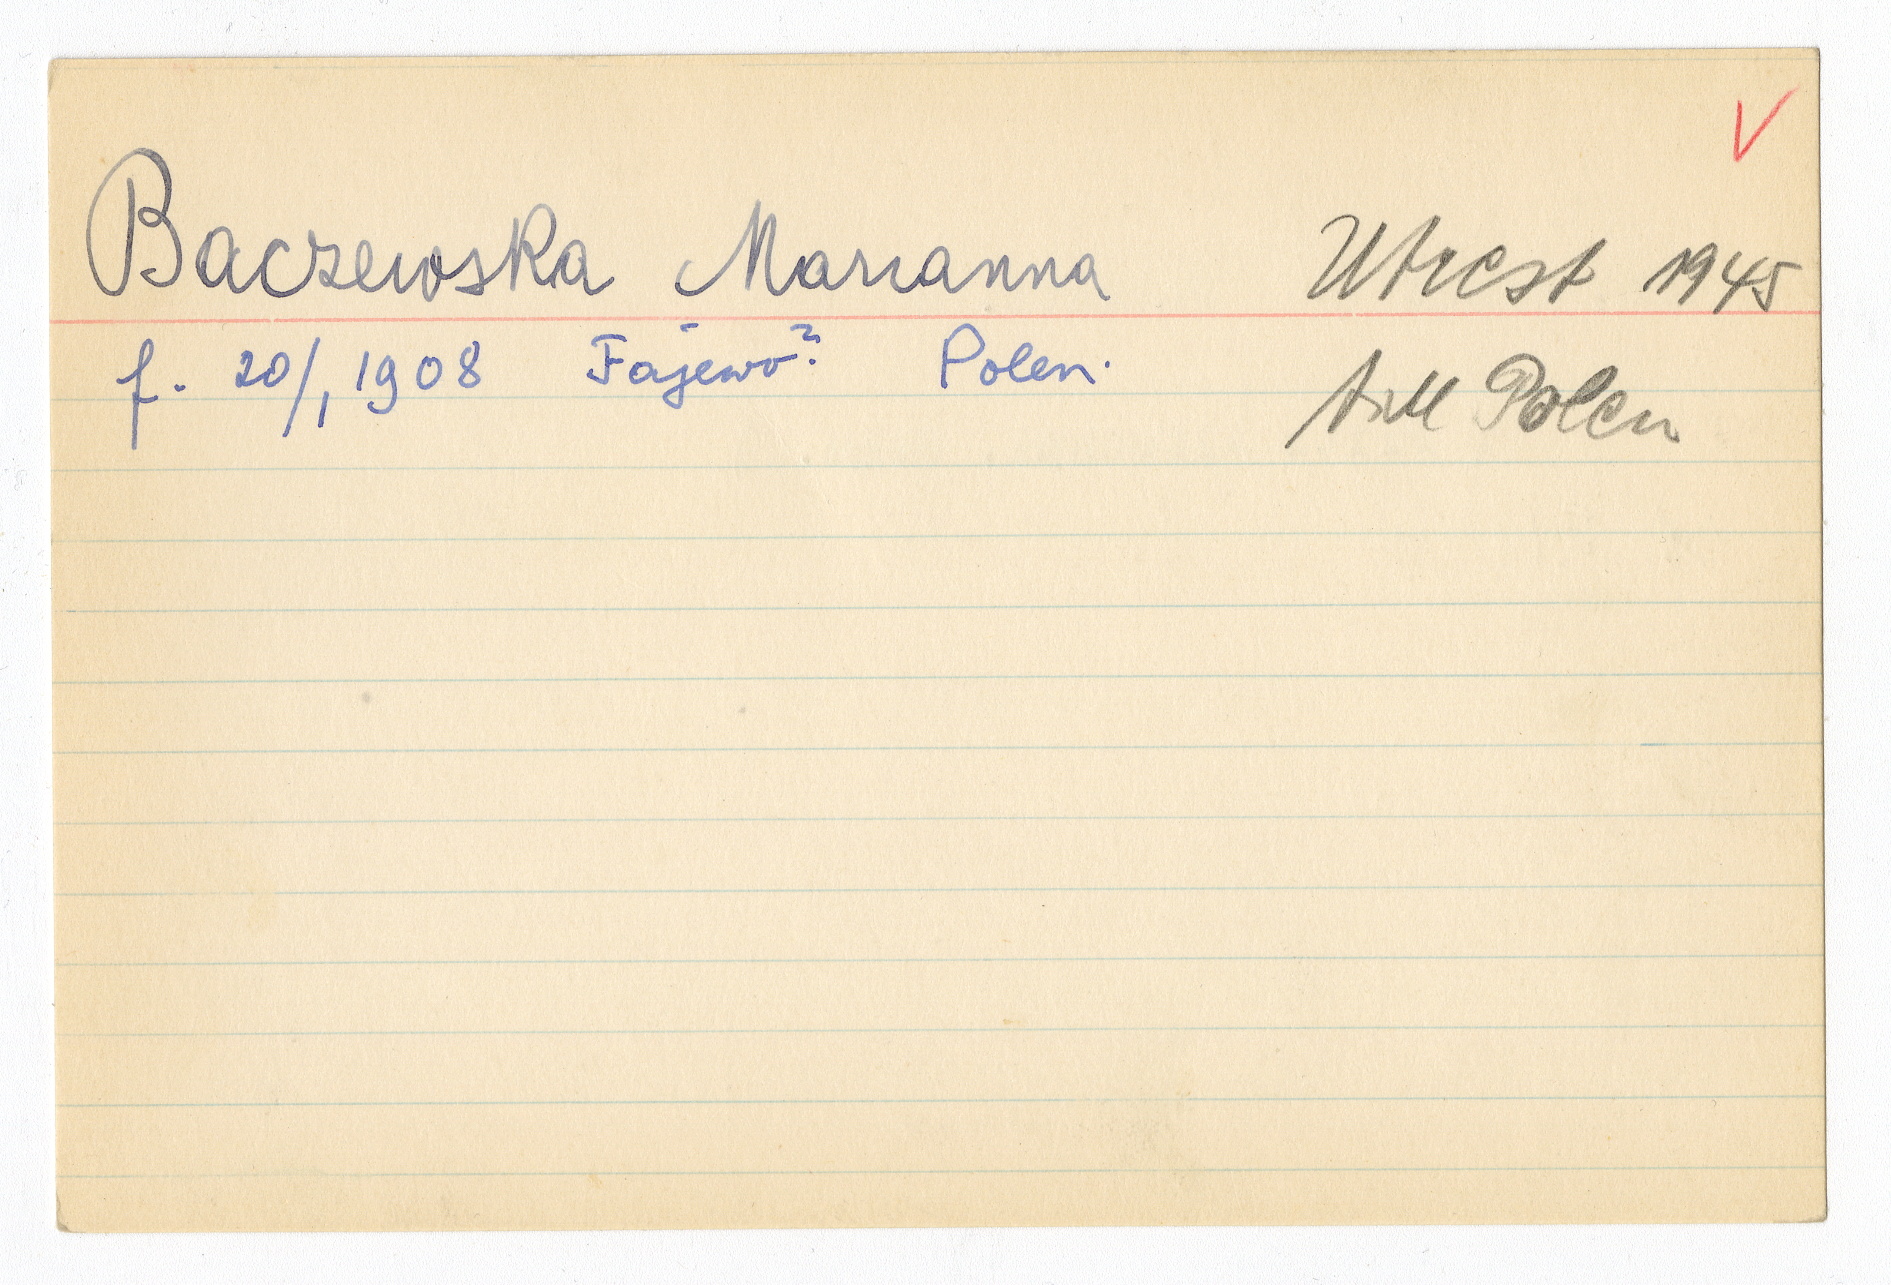 Baczewska Marianna Utrest 1945
f. 20/1 1908 Fajewo? Polen.
till Polen